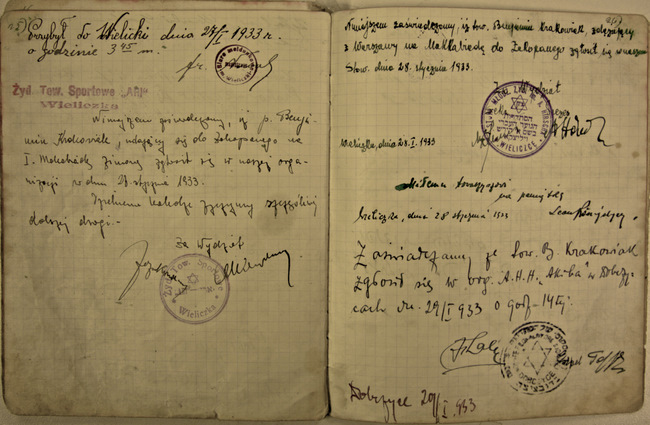 Przybył do Wieliczki dnia 27/I 1933 r.
o godzinie 3 45 m.
Żyd. Tow. Sportowe „ARI"
Wieliczka
Niniejszem poświadczamy, iż p. Benja-
min Krakowiak, udający się do Zakopanego na
I. Makabiadę Zimową zgłosił się w naszej orga-
nizacji w dniu 28 stycznia 1933.
życzymy szczęśliwej
dalszej drogi.-
Za Wydział
Żyd. Tow. Sportowe
Wieliczka
Niniejszem zaświadczamy, iż tow. Benjamin Krakowiak, zdążający
z Warszawy na Makkabiadę do Zakopanego zgłosił się w naszem
Stow. dnia 28. stycznia 1933.
Za Wydział
WIELICZCE
Wieliczka, dnia 28. I. 1933
Miłemu
na pamiątkę
Wieliczka, dnia 28 stycznia 1933
Zaświadczamy że Tow. B. Krakowiak
zgłosił się w org. A.H.H. „Akiba" w Dobczy-
cach dn. 29/I 1933 o godz. 14tej.
Dobczyce 29/I 933